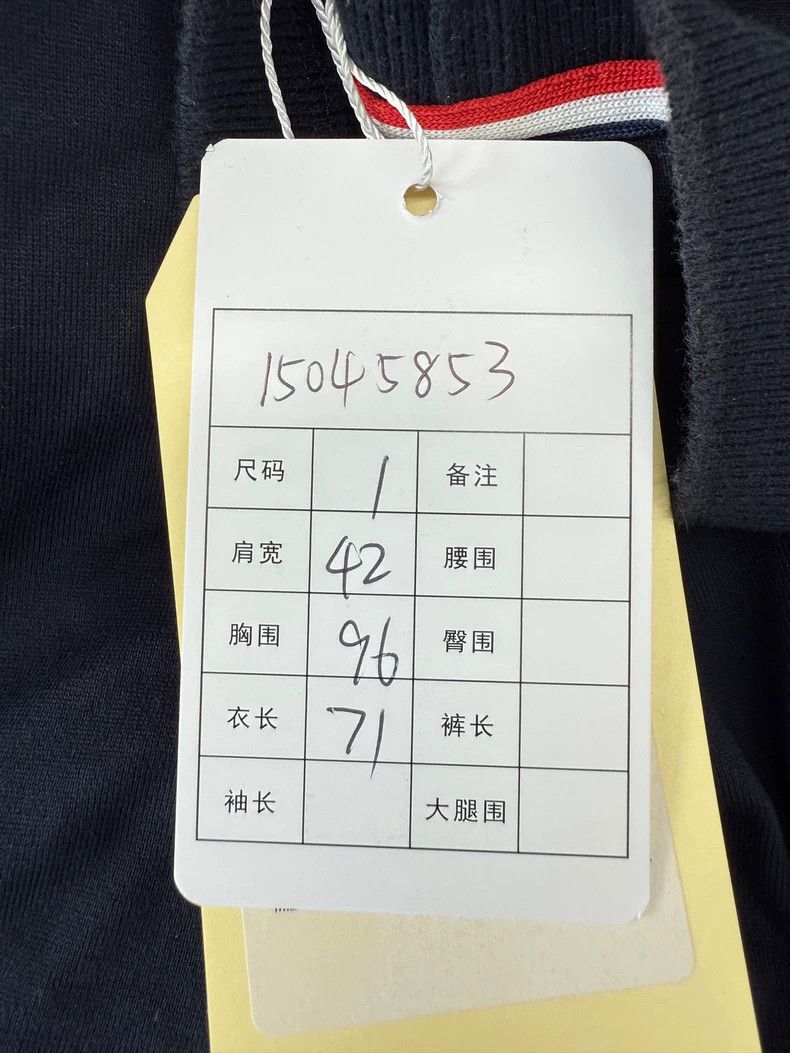 15045853
尺码 1 备注
肩宽 42 腰围
胸围 96 臀围
衣长 71 裤长
袖长 大腿围